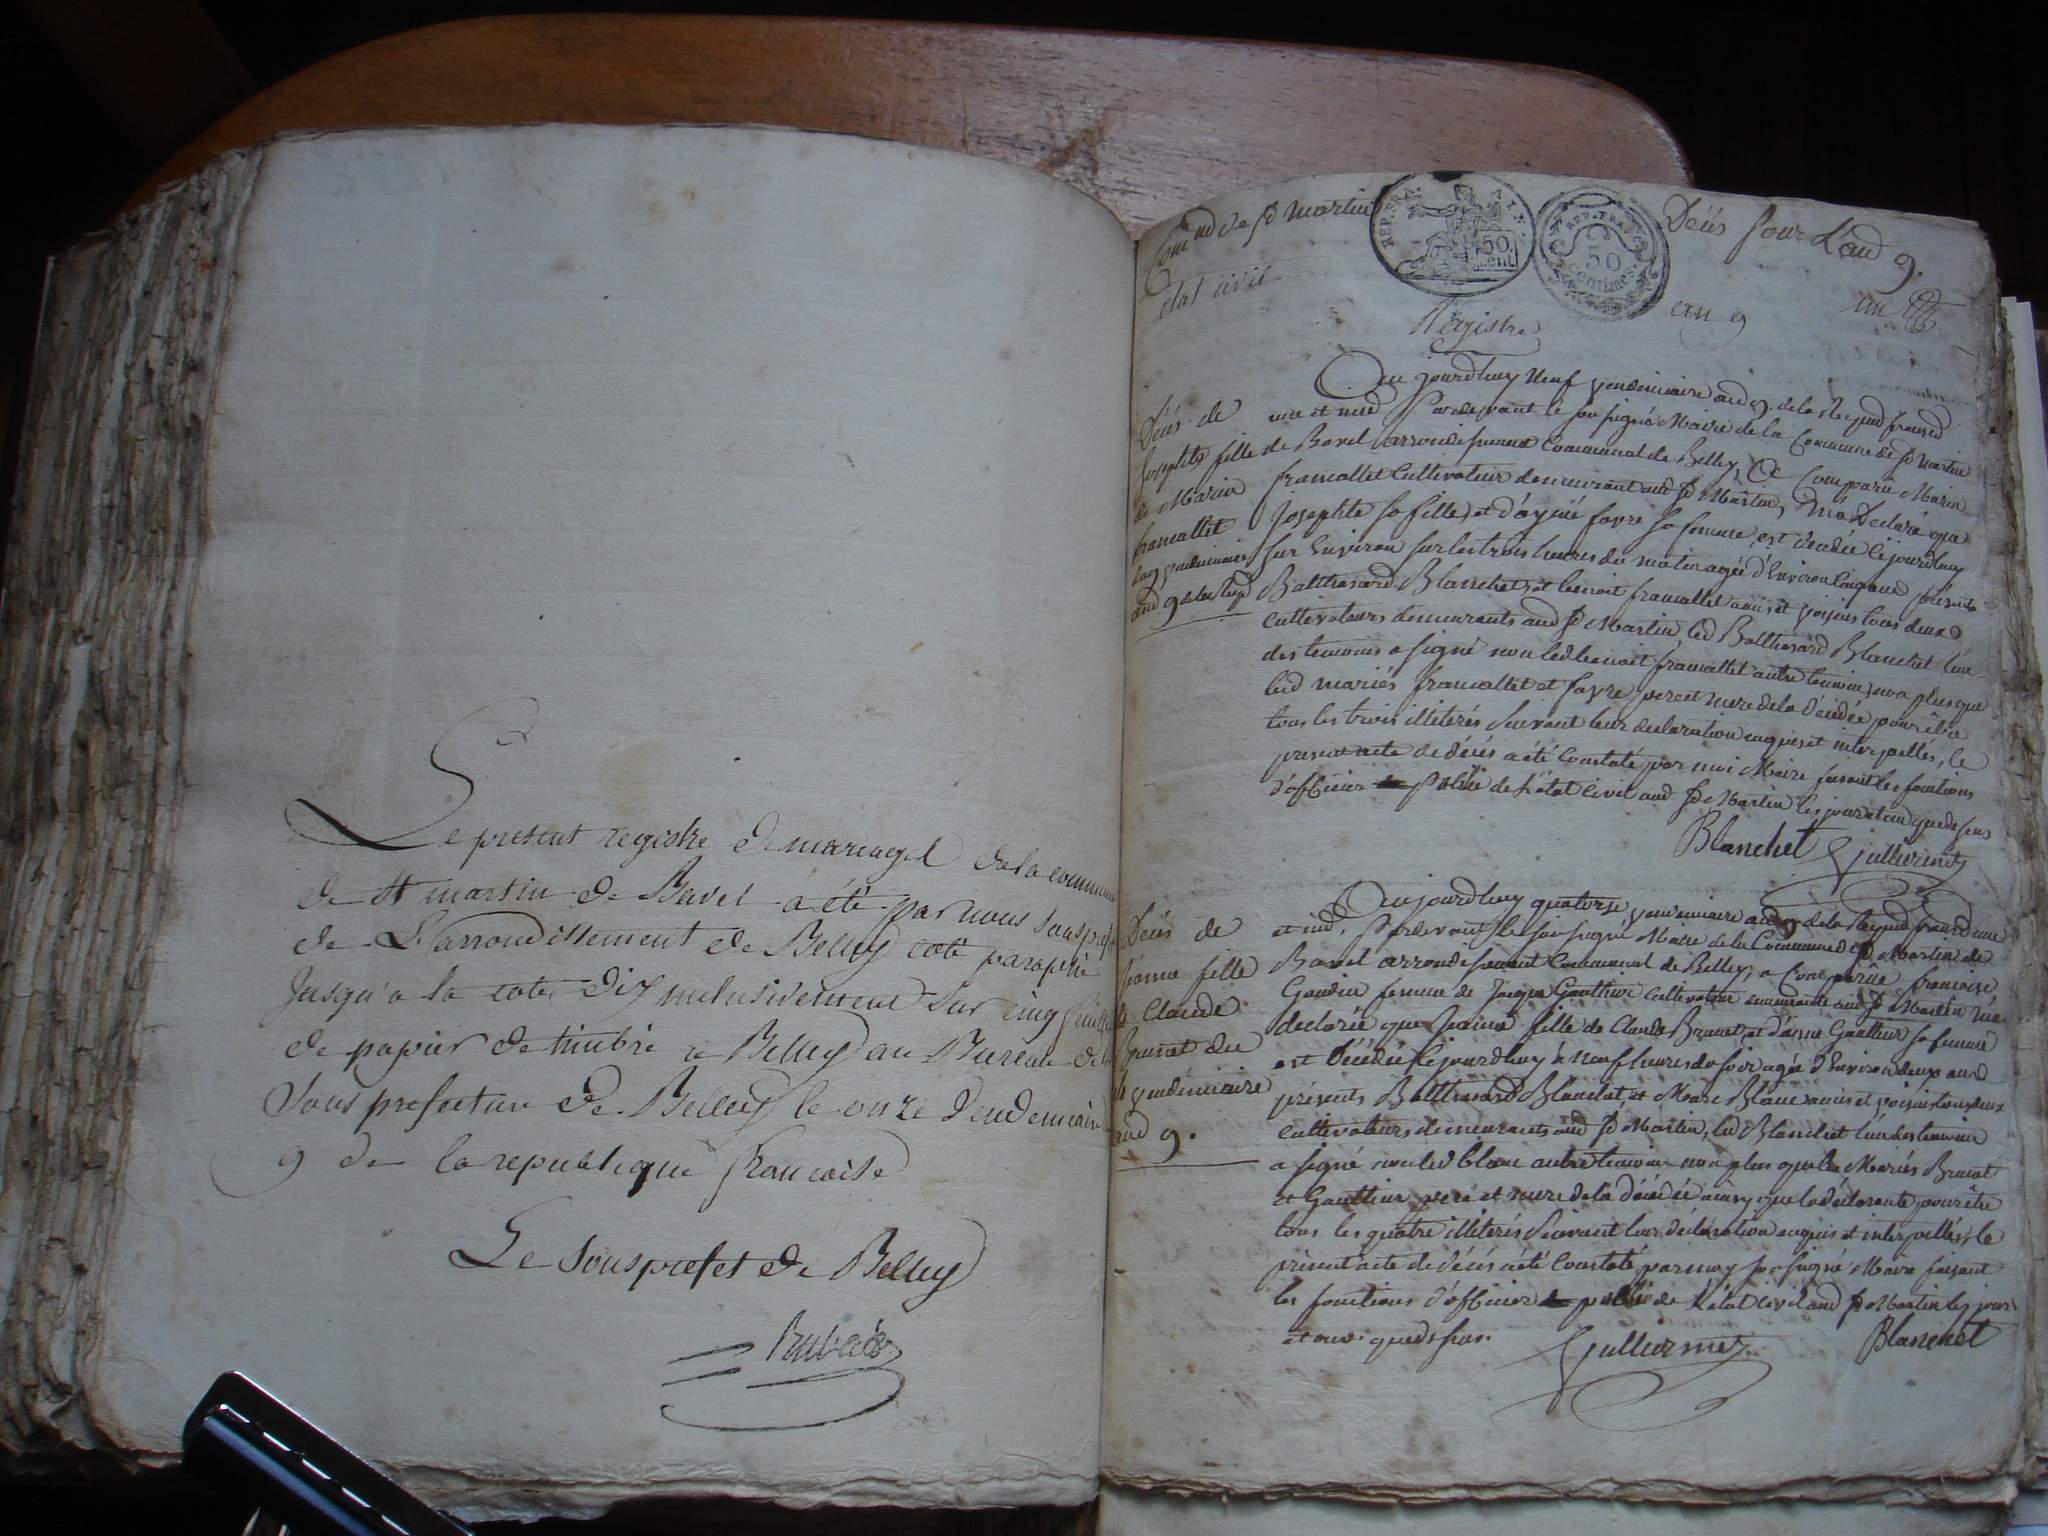 Le present registre de mariages de la commune
de St martin de Bavel a été par nous sousprefet
de L'arrondissement de Belley coté paraphé
Jusqu'a la cote Dix inclusivement sur cinq feuilles
de papier de timbré a Belley au Bureau de la
Sous prefecture de Belley le onze Vendemiaire
9 de la republique francaise
Le Sousprefet de Belley
de St Martin
état civil
REP. FRA.
AIN.
50
cent
REP. FRA.
50
centimes
Décés pour L'an 9.
an 9
an
Registre
Décés de
Josephte fille
de Marin
francallet
du 9 vendemiaire
an 9 de la Rep
Aujourdhuy neuf vendemiaire an 9. de la Repud franced
une et indd Pardevant le soussigné Maire de la Commune de St Martin
de Bavel arrondissement Communal de Belley, a Comparu Marin
francallet Cultivateur demeurant aud St Martin, ma Declaré que
Josephte sa fille, et d'aymé favre sa femme, est décédée cejourdhuy
sur Environ sur les trois heures du matin agée d'Environ Cinq ans présents
Balthasard Blanchet et benoit francallet amis et voisins tous deux
cultivateurs demeurants aud St Martin, led Balthasard Blanchet l'un
des temoins a signé non led benoit francallet autre temoin, non plus que
led mariés francallet et favre pere et mere de la décédée pour être
tous les trois illiterés Suivant leur declaration enquis et interpellés, le
present acte de décés a été Constaté par moi Maire faisant les fonctions
d'officier public de L'état Civil aud St Martin les jour et an que dessus
Blanchet Gulliermet
Décés de
Jeanne fille
de Claude
Brunet du
14 vendémiaire
and 9.
Aujourdhuy quatorze vendemiaire an 9 de la Repud francd une
et indd, Pardevant le soussigné Maire de la Commune de St Martin de
Bavel arrondissement Communal de Belley, a Comparüe francoise
Goudin femme de Jacque Gauthier cultivateur demeurante aud St Martin ma
declarée que Jeanne fille de Claude Brunet, et d'anne Gauthier sa femme
est Décédée cejourdhuy à neuf heures du soir agée d'Environ deux ans
présents Balthasard Blanchet, et Marc Blanc amis et voisins tous deux
cultivateurs demeurants aud St Martin, led Blanchet l'un des temoins
a signé non led blanc autre temoin non plus que les Mariés Brunet
et Gauthier pere et mere de la décédée ainsy que la déclarante pour être
tous les quatre illiterés Suivant leur déclaration enquis et interpellés, le
présent acte de décés a été Constaté par moy soussigné Maire faisant
les fonctions d'officier public de L'état Civil aud St Martin les jour
et an que dessus.
Gulliermet Blanchet